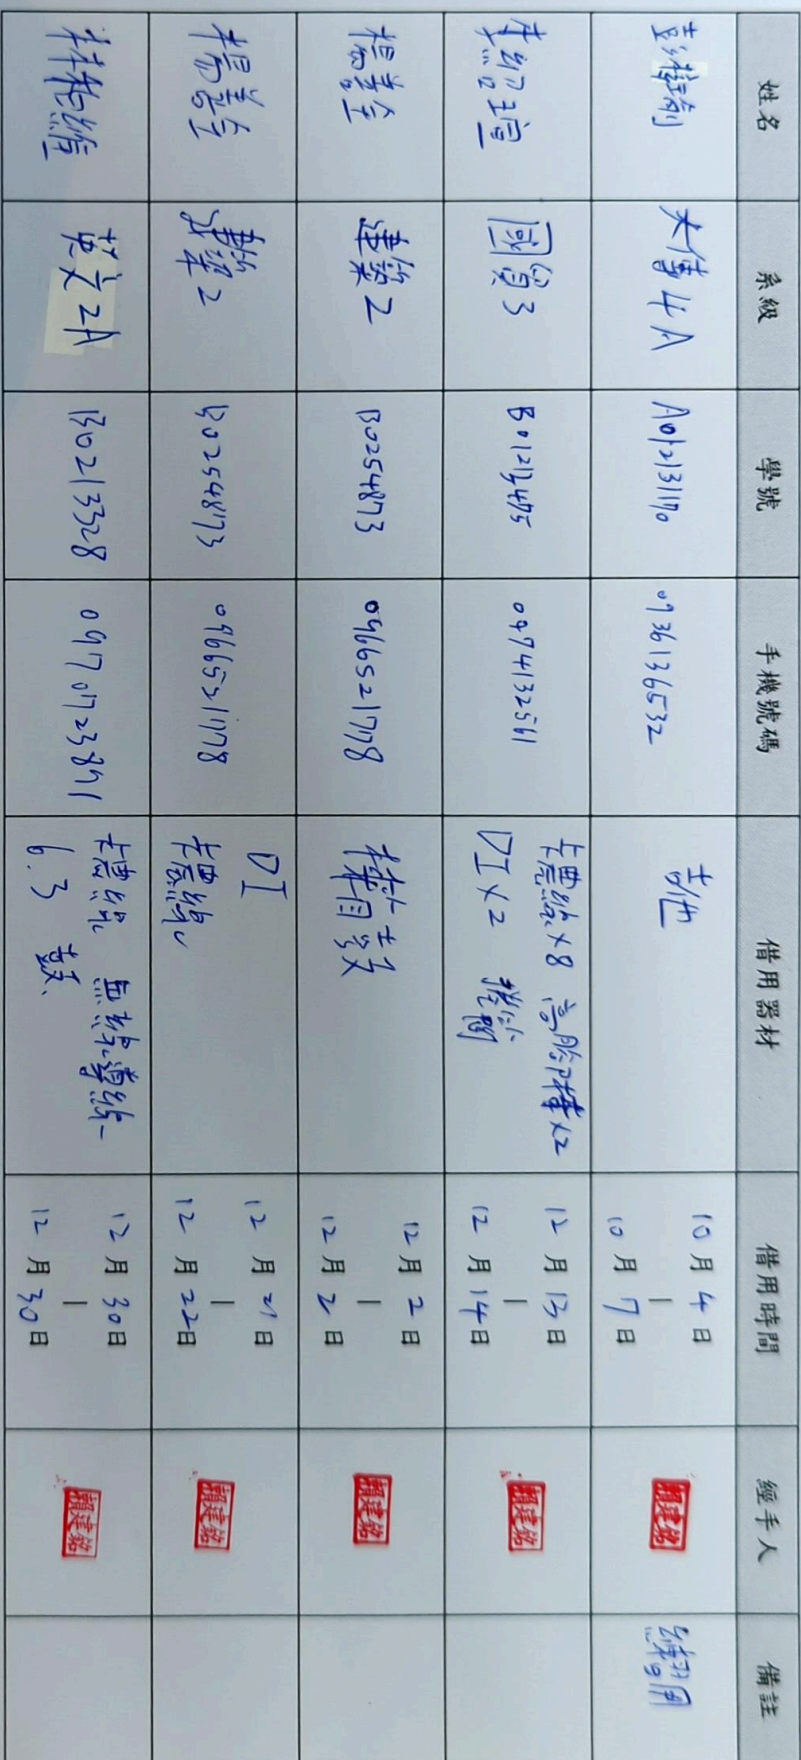 姓名 系級 學號 手機號碼 借用器材 借用時間 經手人 備註
彭 大傳4A A01213170 0936136532 吉他 10月4日 | 10月7日 賴建銘 練習用
國貿3 B01213475 0974132561 卡農線x8 高腳椅x2 12月13日 | 12月14日 賴建銘
DIx2
楊善全 建築2 B0254873 0966521778 12月2日 | 12月2日 賴建銘
楊善全 建築2 B0254873 0966521778 DI 12月21日 | 12月22日 賴建銘
卡農線
林 英文2A B02133328 0970723871 卡農線 無線 導線 12月30日 | 12月30日 賴建銘
6.3 鼓